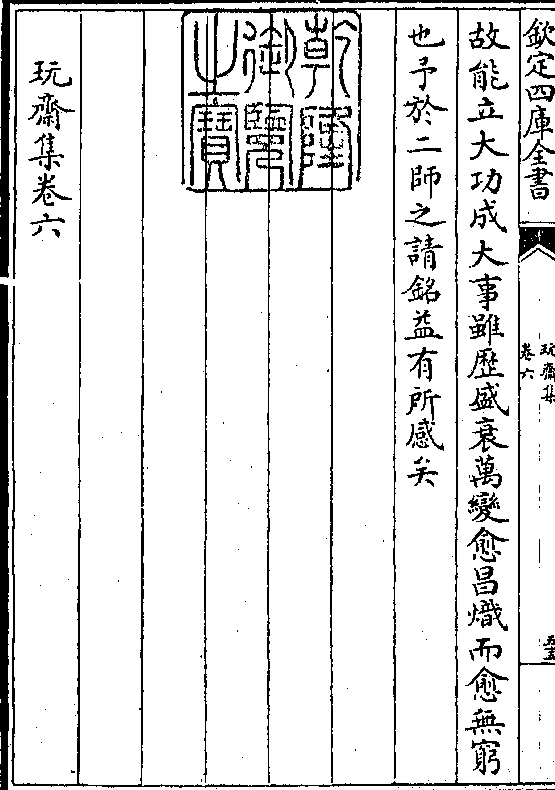 欽定四庫全書
玩齋集
卷六
故能立大功成大事雖歴盛衰萬變愈昌熾而愈無窮
也予於二師之請銘益有所感矣
乾隆
御覽
之寶
玩齋集卷六